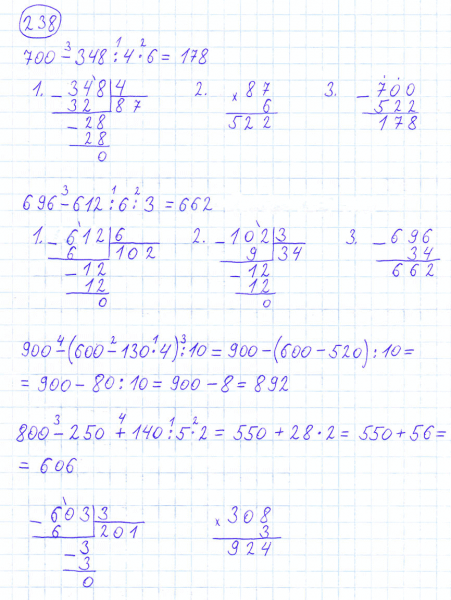 238
700 - 348 : 4 · 6 = 178
3 1 2
1. - 348 | 4 2. × 87 3. - 700
32 | 87 6 522
- 28 522 178
28
0
696 - 612 : 6 : 3 = 662
3 1 2
1. - 612 | 6 2. - 102 | 3 3. - 696
6 | 102 9 | 34 34
- 12 - 12 662
12 12
0 0
900 - (600 - 130 · 4) : 10 = 900 - (600 - 520) : 10 =
4 2 1 3
= 900 - 80 : 10 = 900 - 8 = 892
800 - 250 + 140 : 5 · 2 = 550 + 28 · 2 = 550 + 56 =
3 4 1 2
= 606
- 603 | 3 × 308
6 | 201 3
- 3 924
3
0